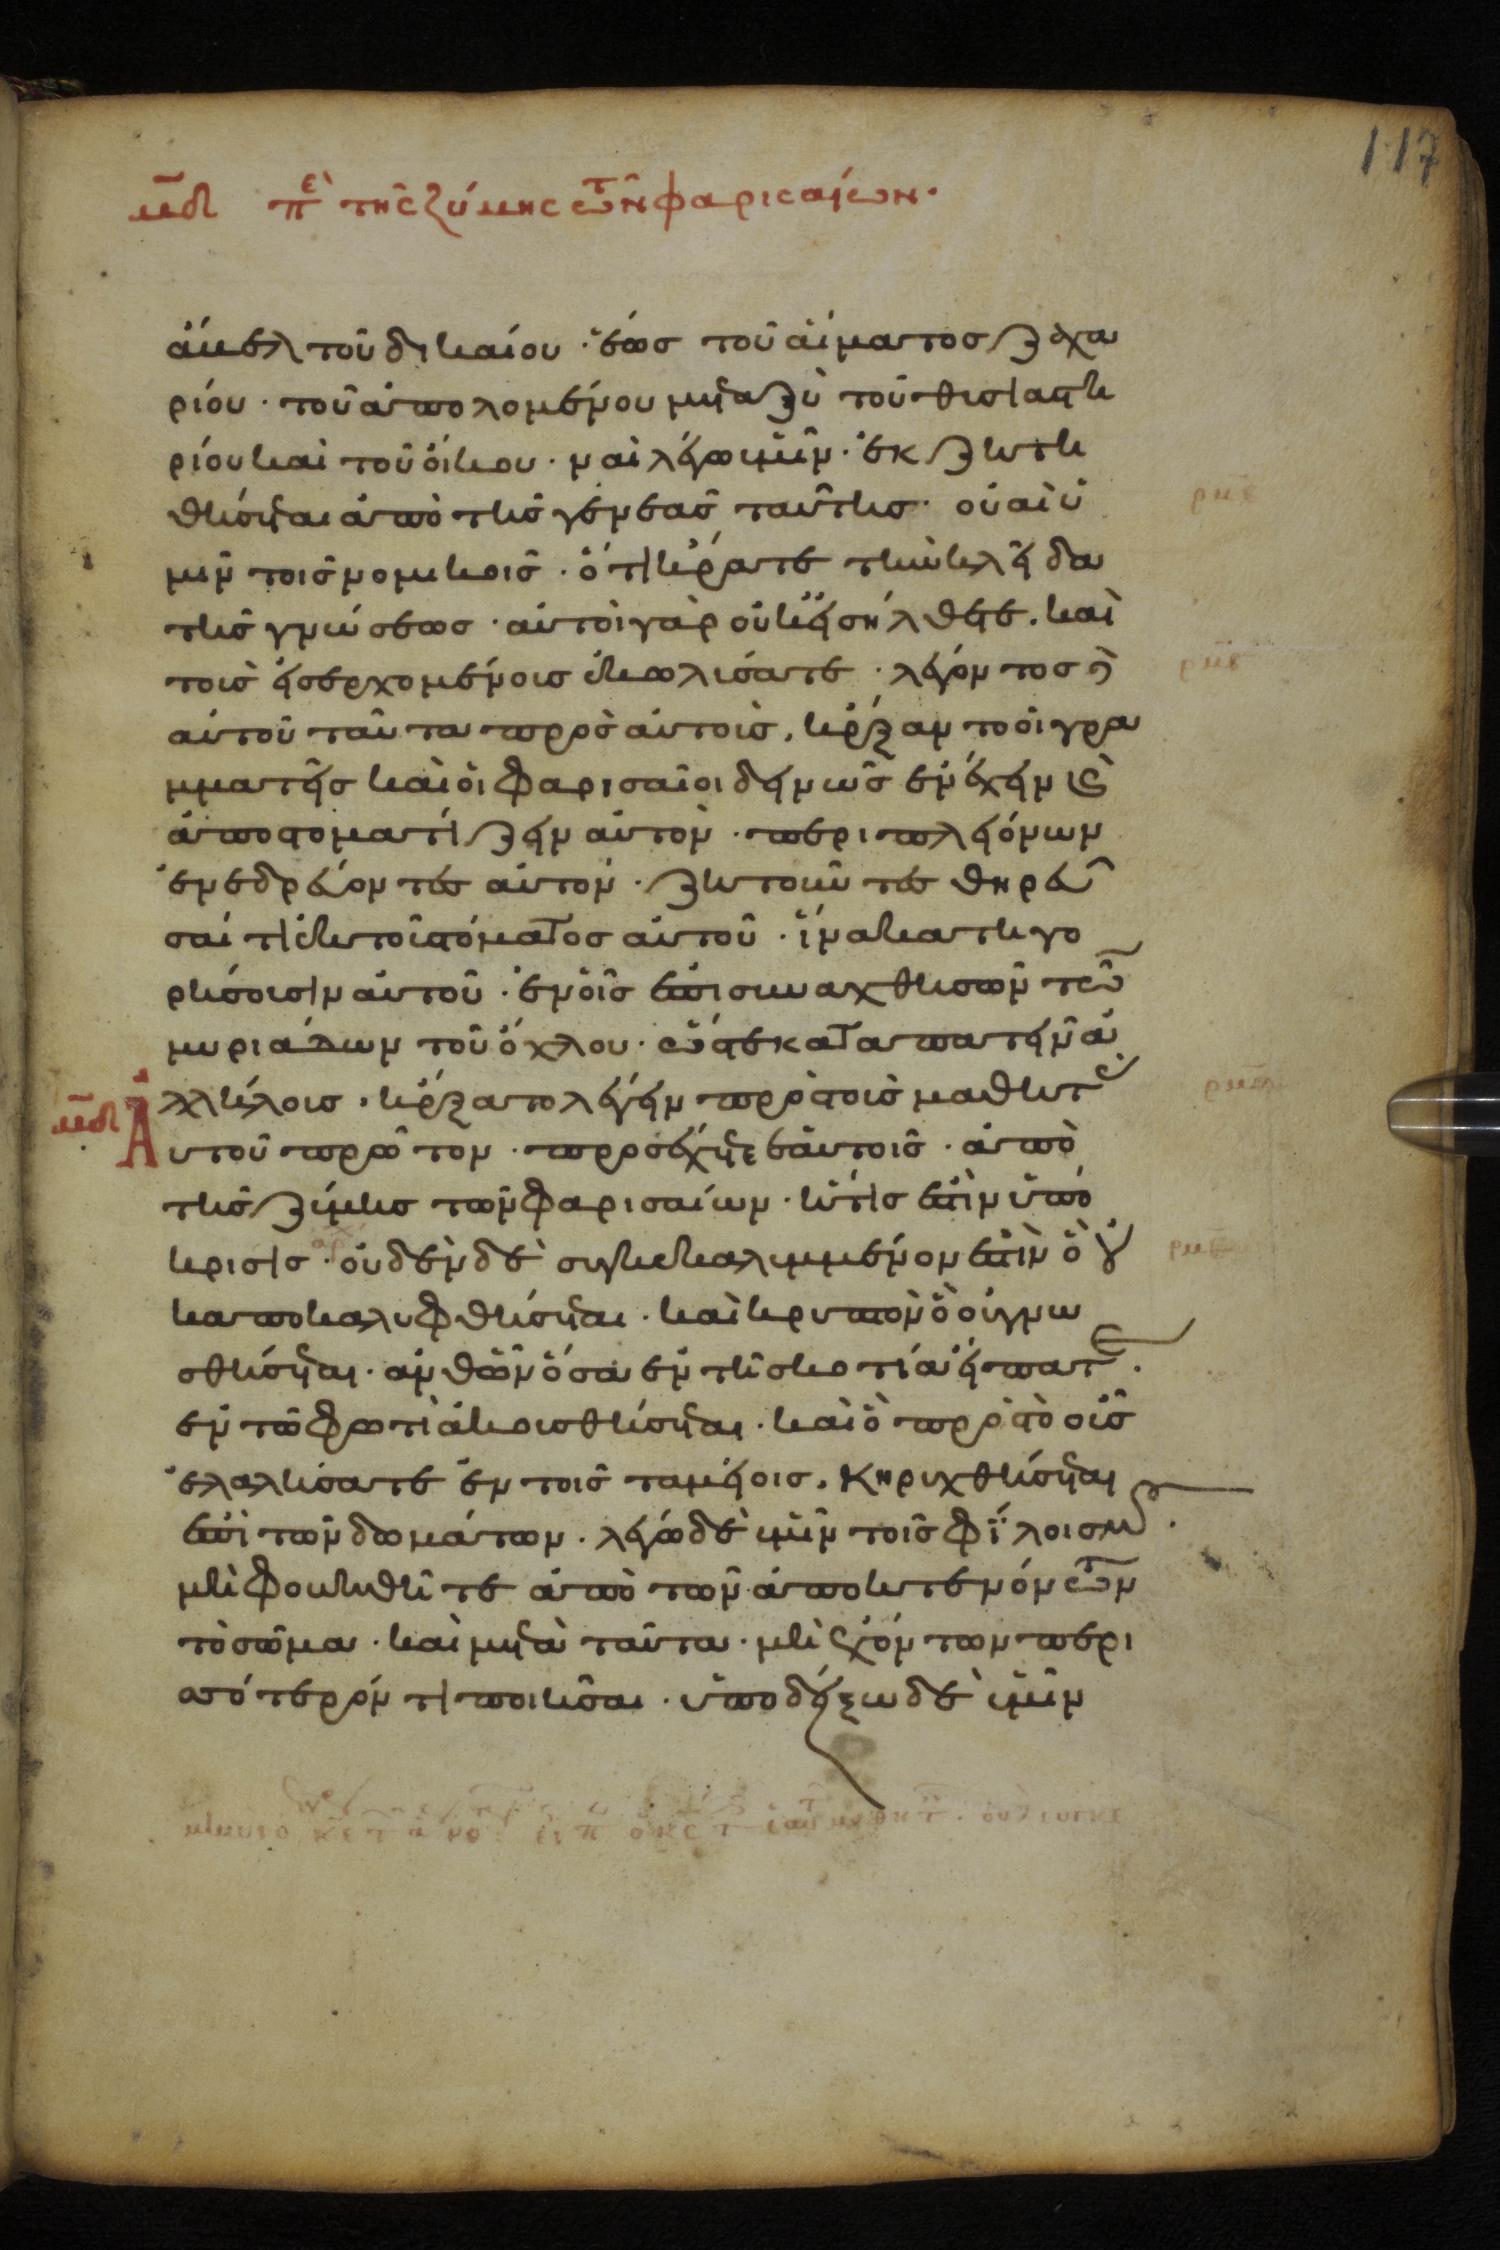 117
μδ πε τῆς ζύμης τῶν φαρισαίων·
ἄβελ τοῦ δικαίου · ἕως τοῦ αἵματος ζαχα
ρίου · τοῦ ἀπολομένου μεταξὺ τοῦ θισιαστη
ρίου καὶ τοῦ οἴκου · ναὶ λέγω ὑμῖν · ἐκζητη
θήσεται ἀπὸ τῆς γενεᾶς ταύτης · οὐαὶ ὑ
μῖν τοῖς νομικοῖς · ὅτι ἤρατε τὴν κλεῖδα
τῆς γνώσεως · αὐτοὶ γὰρ οὐκ εἰσήλθετε . καὶ
τοὺς εἰσερχομένοις ἐκωλύσατε · λέγοντος δὲ
αὐτοῦ ταῦτα πρὸς αὐτοὺς . ἤρξαντο οἱ γρα
μματεῖς καὶ οἱ φαρισαῖοι δεινῶς ἐνέχειν καὶ
ἀποστοματίζειν αὐτὸν · περὶ πλειόνων
ἐνεδρεύοντες αὐτόν · ζητοῦντες θηρεῦ
σαί τι ἐκ τοῦ στόματος αὐτοῦ · ἵνα κατηγο
ρήσοισιν αὐτοῦ · ἐν οἷς ἐπισυναχθησῶν τῶν
μυριάδων τοῦ ὄχλου · ὥστε καταπατεῖν ἀ
λλήλοις . ἤρξατο λέγειν πρὸς τοὺς μαθητὰς
μδ Αὐτοῦ πρῶτον · προσέχετε ἑαυτοῖς · ἀπὸ
τῆς ζύμης τῶν φαρισαίων · ἥτις ἐστὶν ὑπό
κρισις · οὐδὲν δὲ συγκεκαλιμμένον ἐστὶν ὃ οὐ
κ ἀποκαλυφθήσεται · καὶ κρυπτὸν ὃ οὐ γνω
σθήσεται · ἀνθῶν ὅσα ἐν τῇ σκοτίᾳ εἴπατε ·
ἐν τῷ φωτὶ ἀκουσθήσεται · καὶ ὃ πρὸς τὸ οὖς
ἐλαλήσατε ἐν τοῖς ταμείοις . κηριχθήσεται
ἐπὶ τῶν δωμάτων · λέγω δὲ ὑμῖν τοῖς φίλοις μου ·
μὴ φοβηθῆτε ἀπὸ τῶν ἀποκτενόντων
τὸ σῶμα · καὶ μετὰ ταῦτα · μὴ ἐχόντων περι
σσότερόν τι ποιῆσαι · ὑποδείξω δὲ ὑμῖν